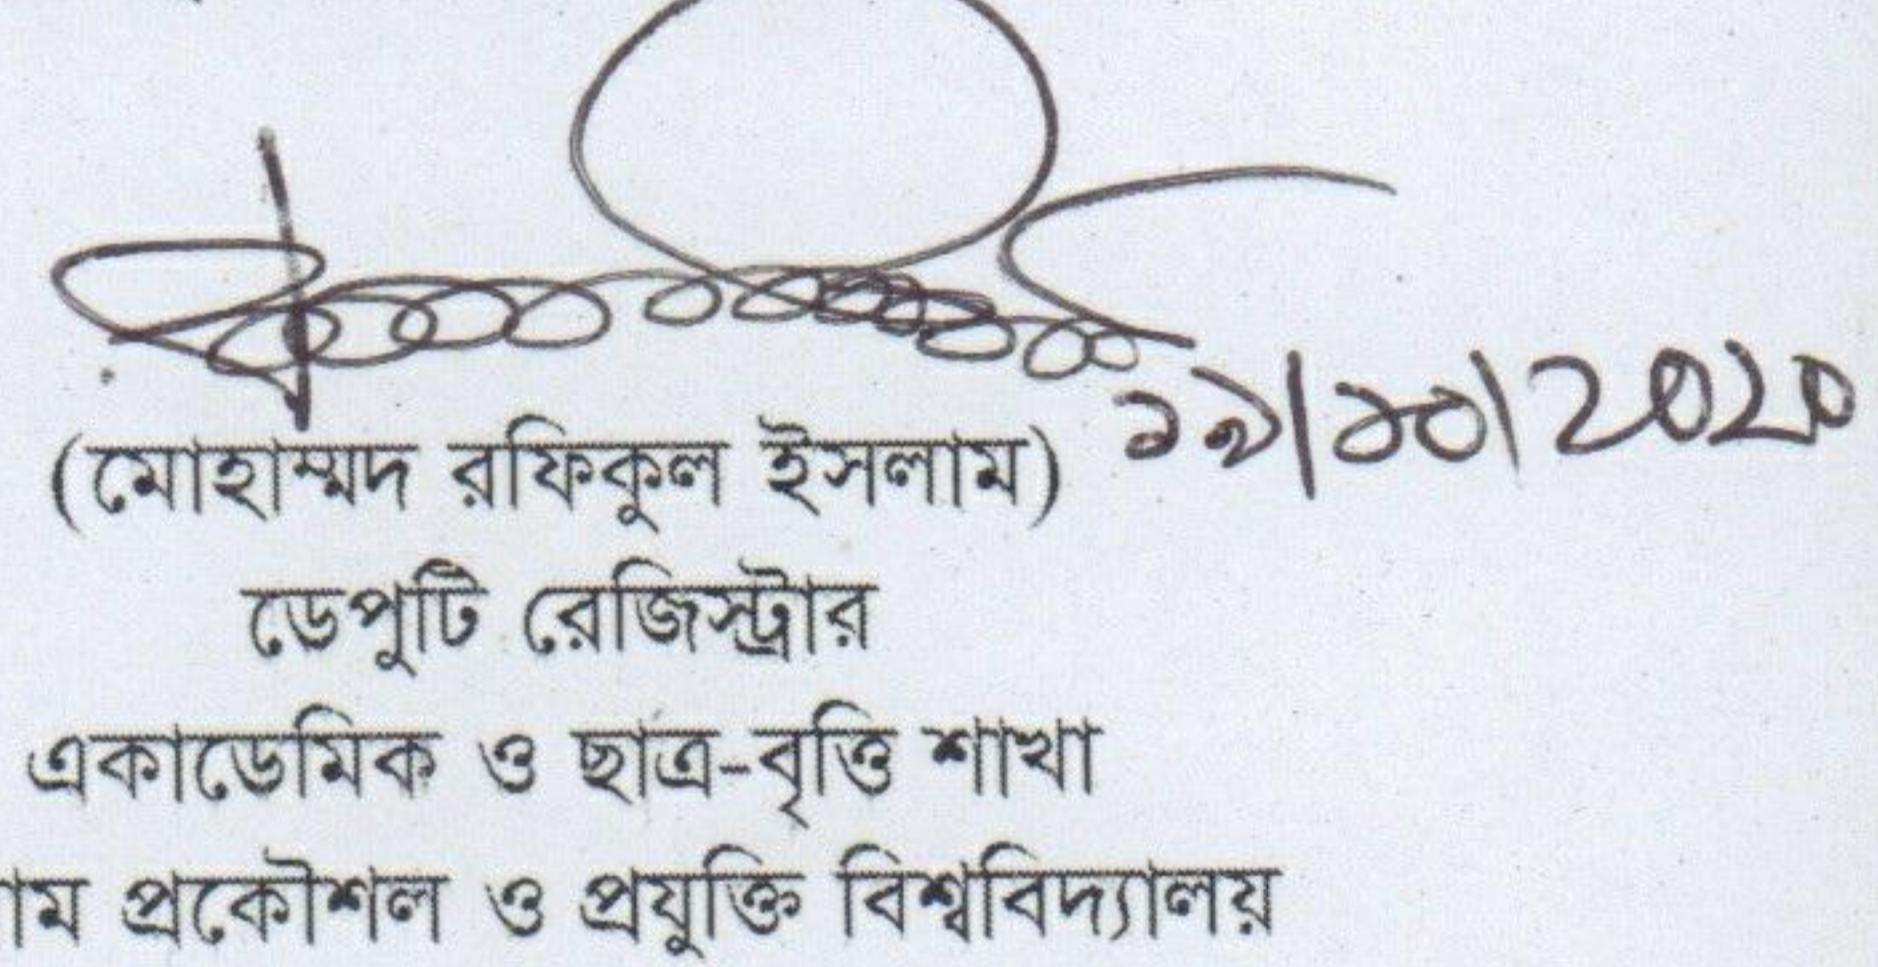 ১১/১০/2020
(মোহাম্মদ রফিকুল ইসলাম)
ডেপুটি রেজিস্ট্রার
একাডেমিক ও ছাত্র-বৃত্তি শাখা
াম প্রকৌশল ও প্রযুক্তি বিশ্ববিদ্যালয়